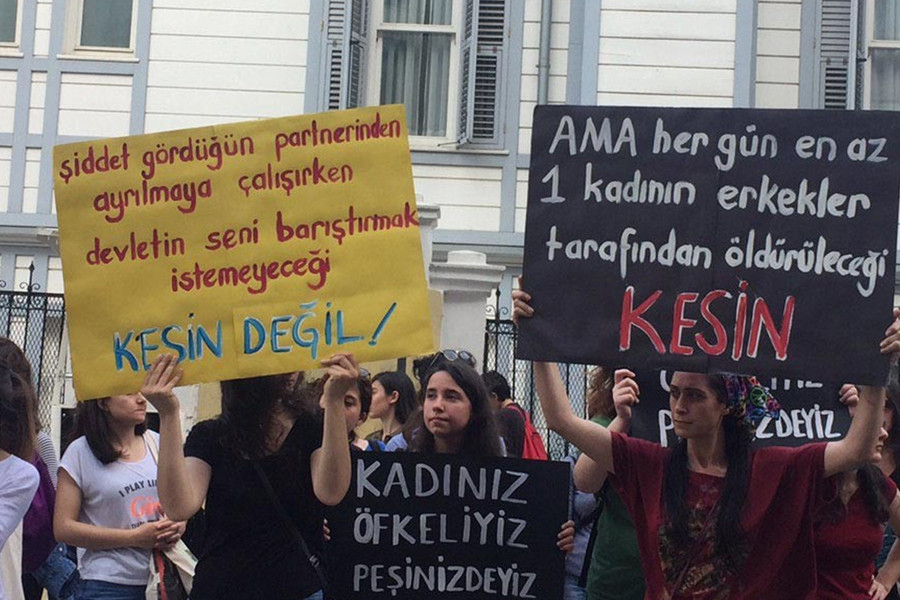 şiddet gördüğün partnerinden
ayrılmaya çalışırken
devletin seni barıştırmak
istemeyeceği
KESİN DEĞİL!
AMA her gün en az
1 kadının erkekler
tarafından öldürüleceği
KESİN
KADINIZ
ÖFKELİYİZ
PEŞİNİZDEYİZ
İZDEYİZ
I PLAY LIKE